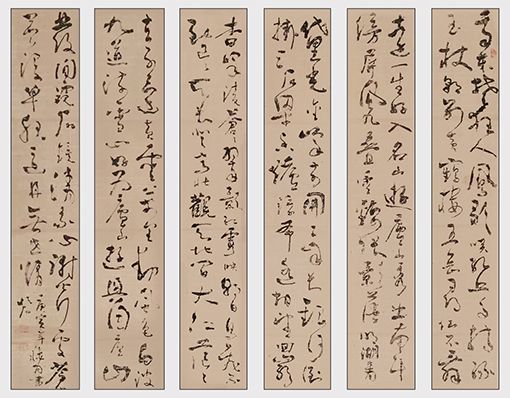 我本楚狂人鳳歌笑孔丘手持綠
玉杖朝別黃鶴樓五岳尋仙不辭
遠一生好入名山遊廬山秀出南斗
傍屏風九疊雲錦張影落明湖青
黛光金闕前開二峰長銀河倒
掛三石梁香爐瀑布遙相望迴崖
沓嶂凌蒼蒼翠影紅霞映朝日鳥飛不
到吳天長登高壯觀天地間大江茫茫
去不還黃雲萬里動風色白波
九道流雪山好為廬山謠興因廬山
發閑窺石鏡清我心謝公行處蒼
苔沒早服還丹無世情